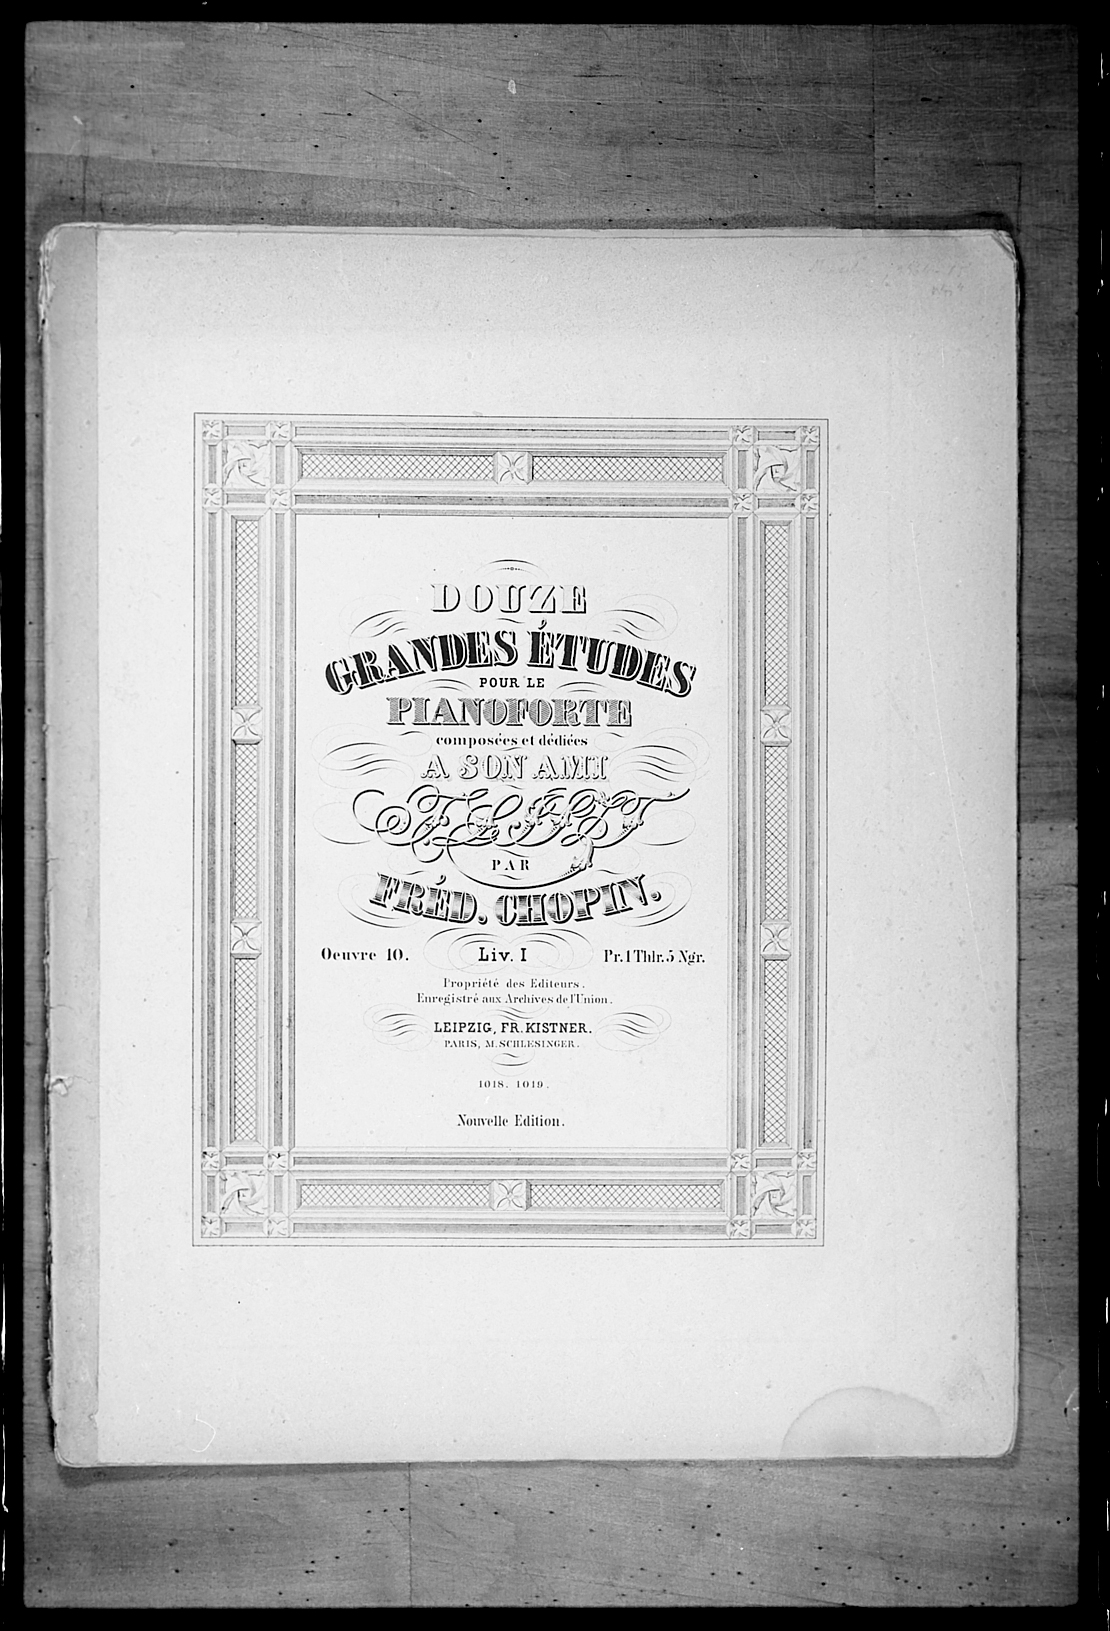 DOUZE
GRANDES ÉTUDES
POUR LE
PIANOFORTE
composées et dédiées
A SON AMI
F. LISZT
PAR
FRÉD. CHOPIN.
Oeuvre 10. Liv. I Pr. 1 Thlr. 5 Ngr.
Propriété des Editeurs.
Enregistré aux Archives de l'Union.
LEIPZIG, FR. KISTNER.
PARIS, M. SCHLESINGER.
1018. 1019.
Nouvelle Edition.